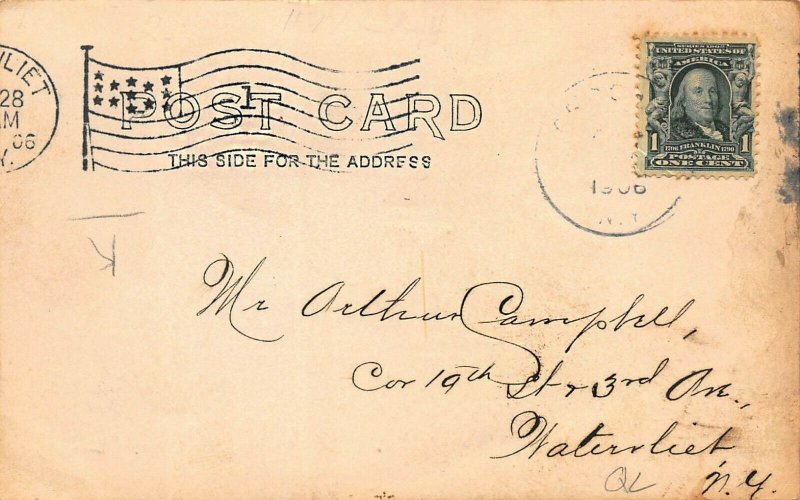 VLIET
28
M
06
Y.
1
POST CARD
THIS SIDE FOR THE ADDRESS
1906
N.Y.
SERIES 1902
UNITED STATES OF
AMERICA
1 1706 FRANKLIN 1790 1
POSTAGE
ONE CENT
Mr Arthur Campbell,
Cor 19th St & 3rd Av.,
Watervliet
N.Y.